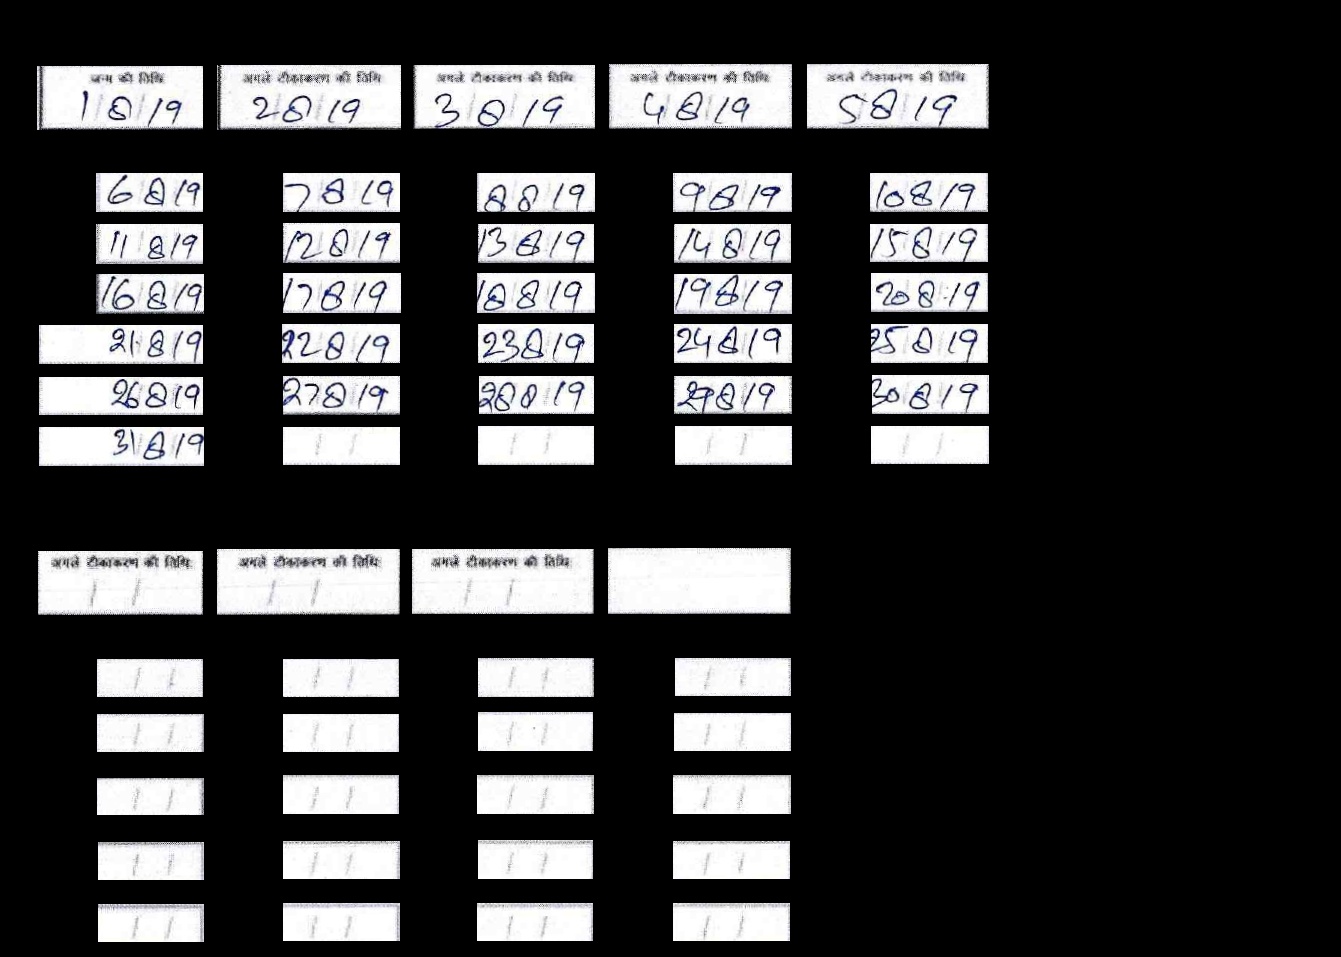 जन्म की तिथि अगले टीकाकरण की तिथि अगले टीकाकरण की तिथि अगले टीकाकरण की तिथि अगले टीकाकरण की तिथि
1/8/19 28/19 3/8/19 48/19 58/19
68/19 78/19 88/19 98/19 108/19
118/19 128/19 138/19 148/19 158/19
168/19 178/19 188/19 198/19 208/19
218/19 228/19 238/19 248/19 258/19
268/19 278/19 288/19 298/19 308/19
318/19 / / / / / / / /
अगले टीकाकरण की तिथि: अगले टीकाकरण की तिथि: अगले टीकाकरण की तिथि:
/ / / / / /
/ / / / / / / /
/ / / / / / / /
/ / / / / / / /
/ / / / / / / /
/ / / / / / / /